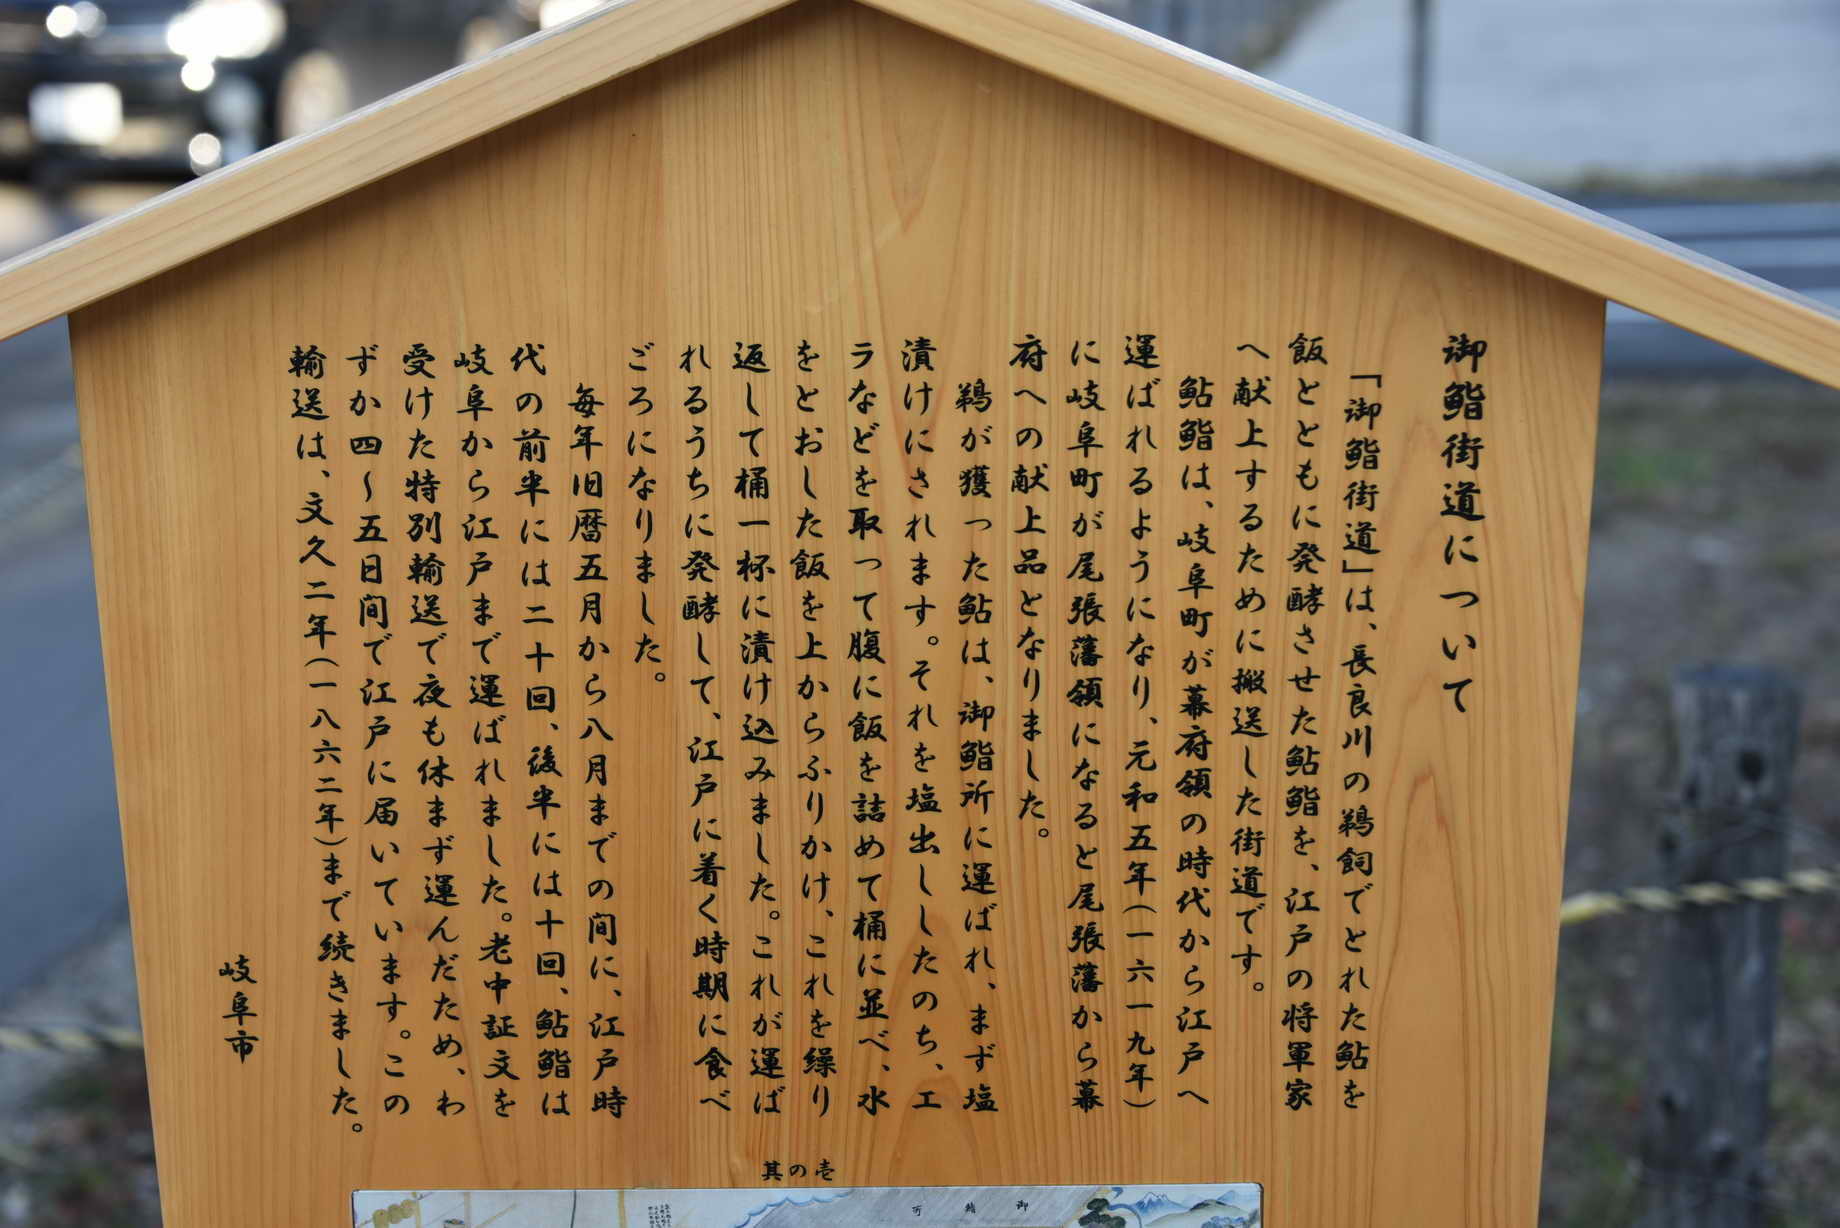 御鮨街道について
「御鮨街道」は、長良川の鵜飼でとれた鮎を
飯とともに発酵させた鮎鮨を、江戸の将軍家
へ献上するために搬送した街道です。
鮎鮨は、岐阜町が幕府領の時代から江戸へ
運ばれるようになり、元和五年(一六一九年)
に岐阜町が尾張藩領になると尾張藩から幕
府への献上品となりました。
鵜が獲った鮎は、御鮨所に運ばれ、まず塩
漬けにされます。それを塩出ししたのち、エ
ラなどを取って腹に飯を詰めて桶に並べ、水
をとおした飯を上からふりかけ、これを繰り
返して桶一杯に漬け込みました。これが運ば
れるうちに発酵して、江戸に着く時期に食べ
ごろになりました。
毎年旧暦五月から八月までの間に、江戸時
代の前半には二十回、後半には十回、鮎鮨は
岐阜から江戸まで運ばれました。老中証文を
受けた特別輸送で夜も休まず運んだため、わ
ずか四～五日間で江戸に届いています。この
輸送は、文久二年(一八六二年)まで続きました。
岐阜市
其の壱
御鮨所